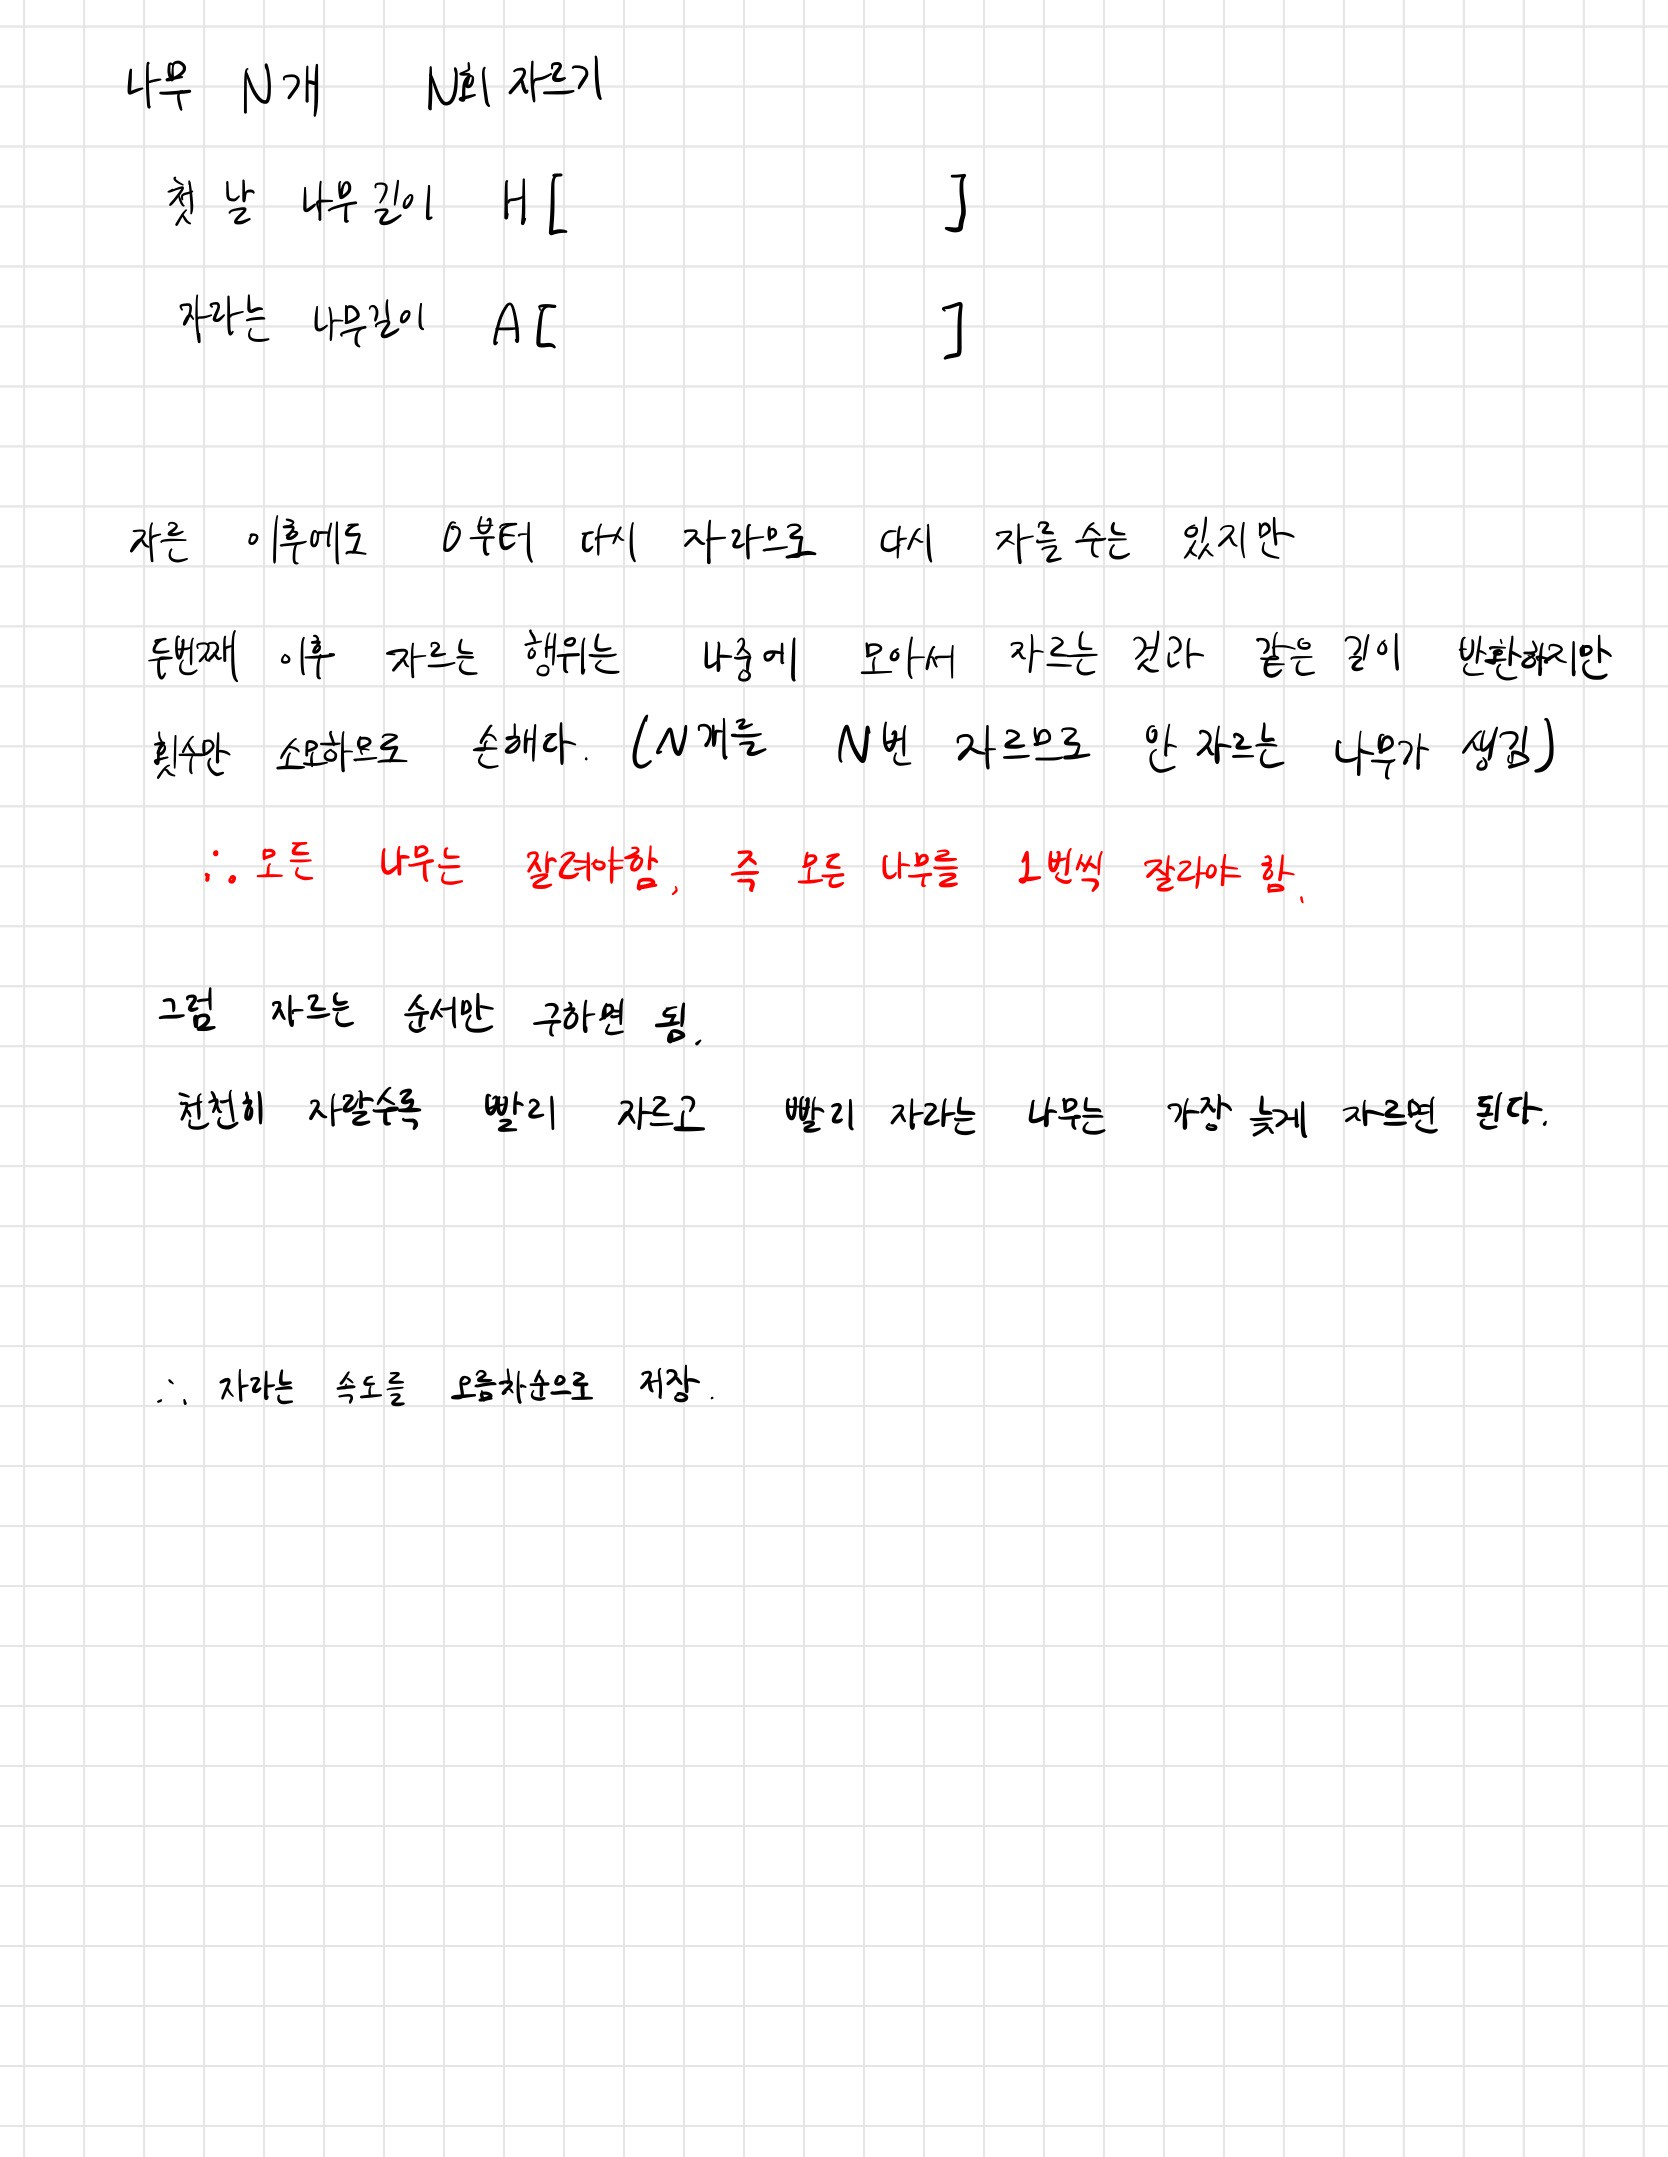 나무 N개 N회 자르기
첫 날 나무길이 H[ ]
자라는 나무길이 A[ ]
자른 이후에도 0부터 다시 자라므로 다시 자를 수는 있지만
두번째 이후 자르는 행위는 나중에 모아서 자르는 것과 같은 길이 반환하지만
횟수만 소모하므로 손해다. (N개를 N번 자르므로 안 자르는 나무가 생김)
∴ 모든 나무는 잘려야함, 즉 모든 나무를 1번씩 잘라야 함.
그럼 자르는 순서만 구하면 됨.
천천히 자랄수록 빨리 자르고 빨리 자라는 나무는 가장 늦게 자르면 된다.
∴ 자라는 속도를 오름차순으로 저장.